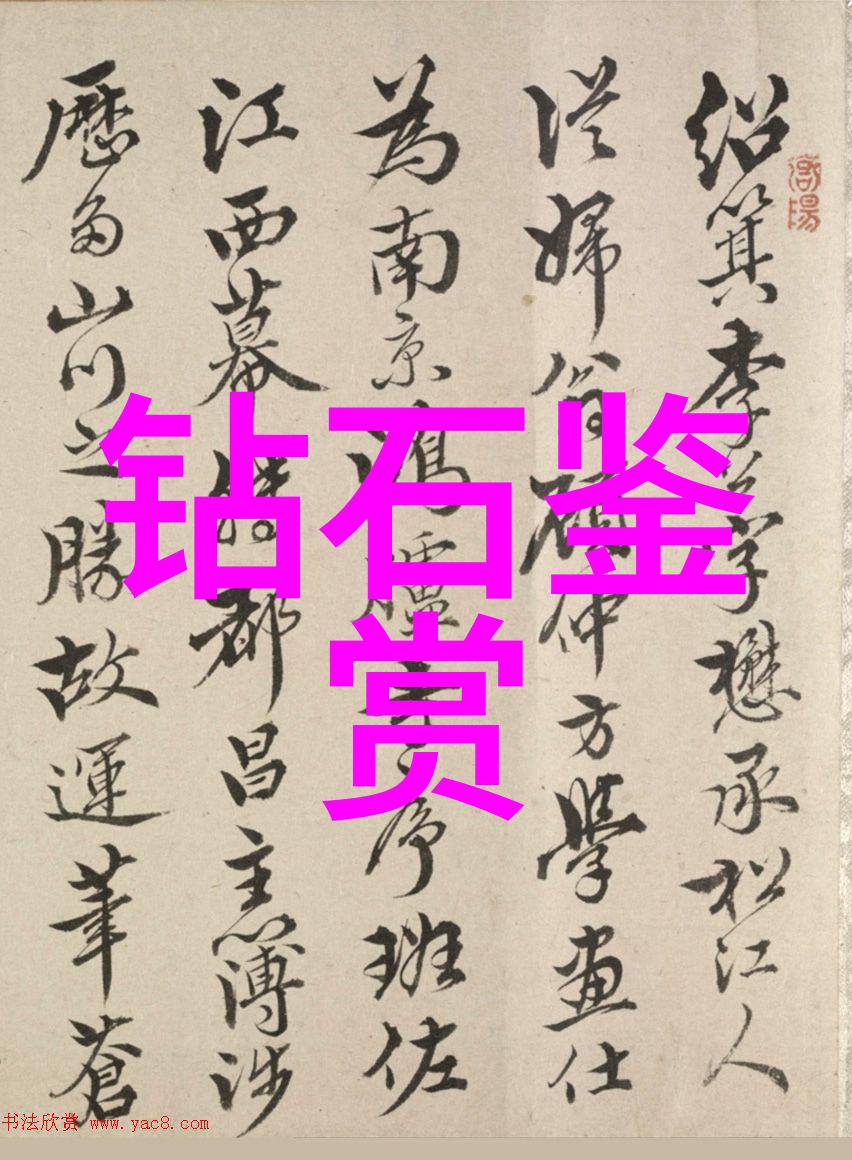 紹箕李字懋承松江人
從婦翁顧仲方學畫仕
為南京鴻臚寺序班佐
江西幕轉都昌主薄涉
歷多山川之勝故運筆蒼
钻石鉴
赏
书法欣赏 www.yac8.com